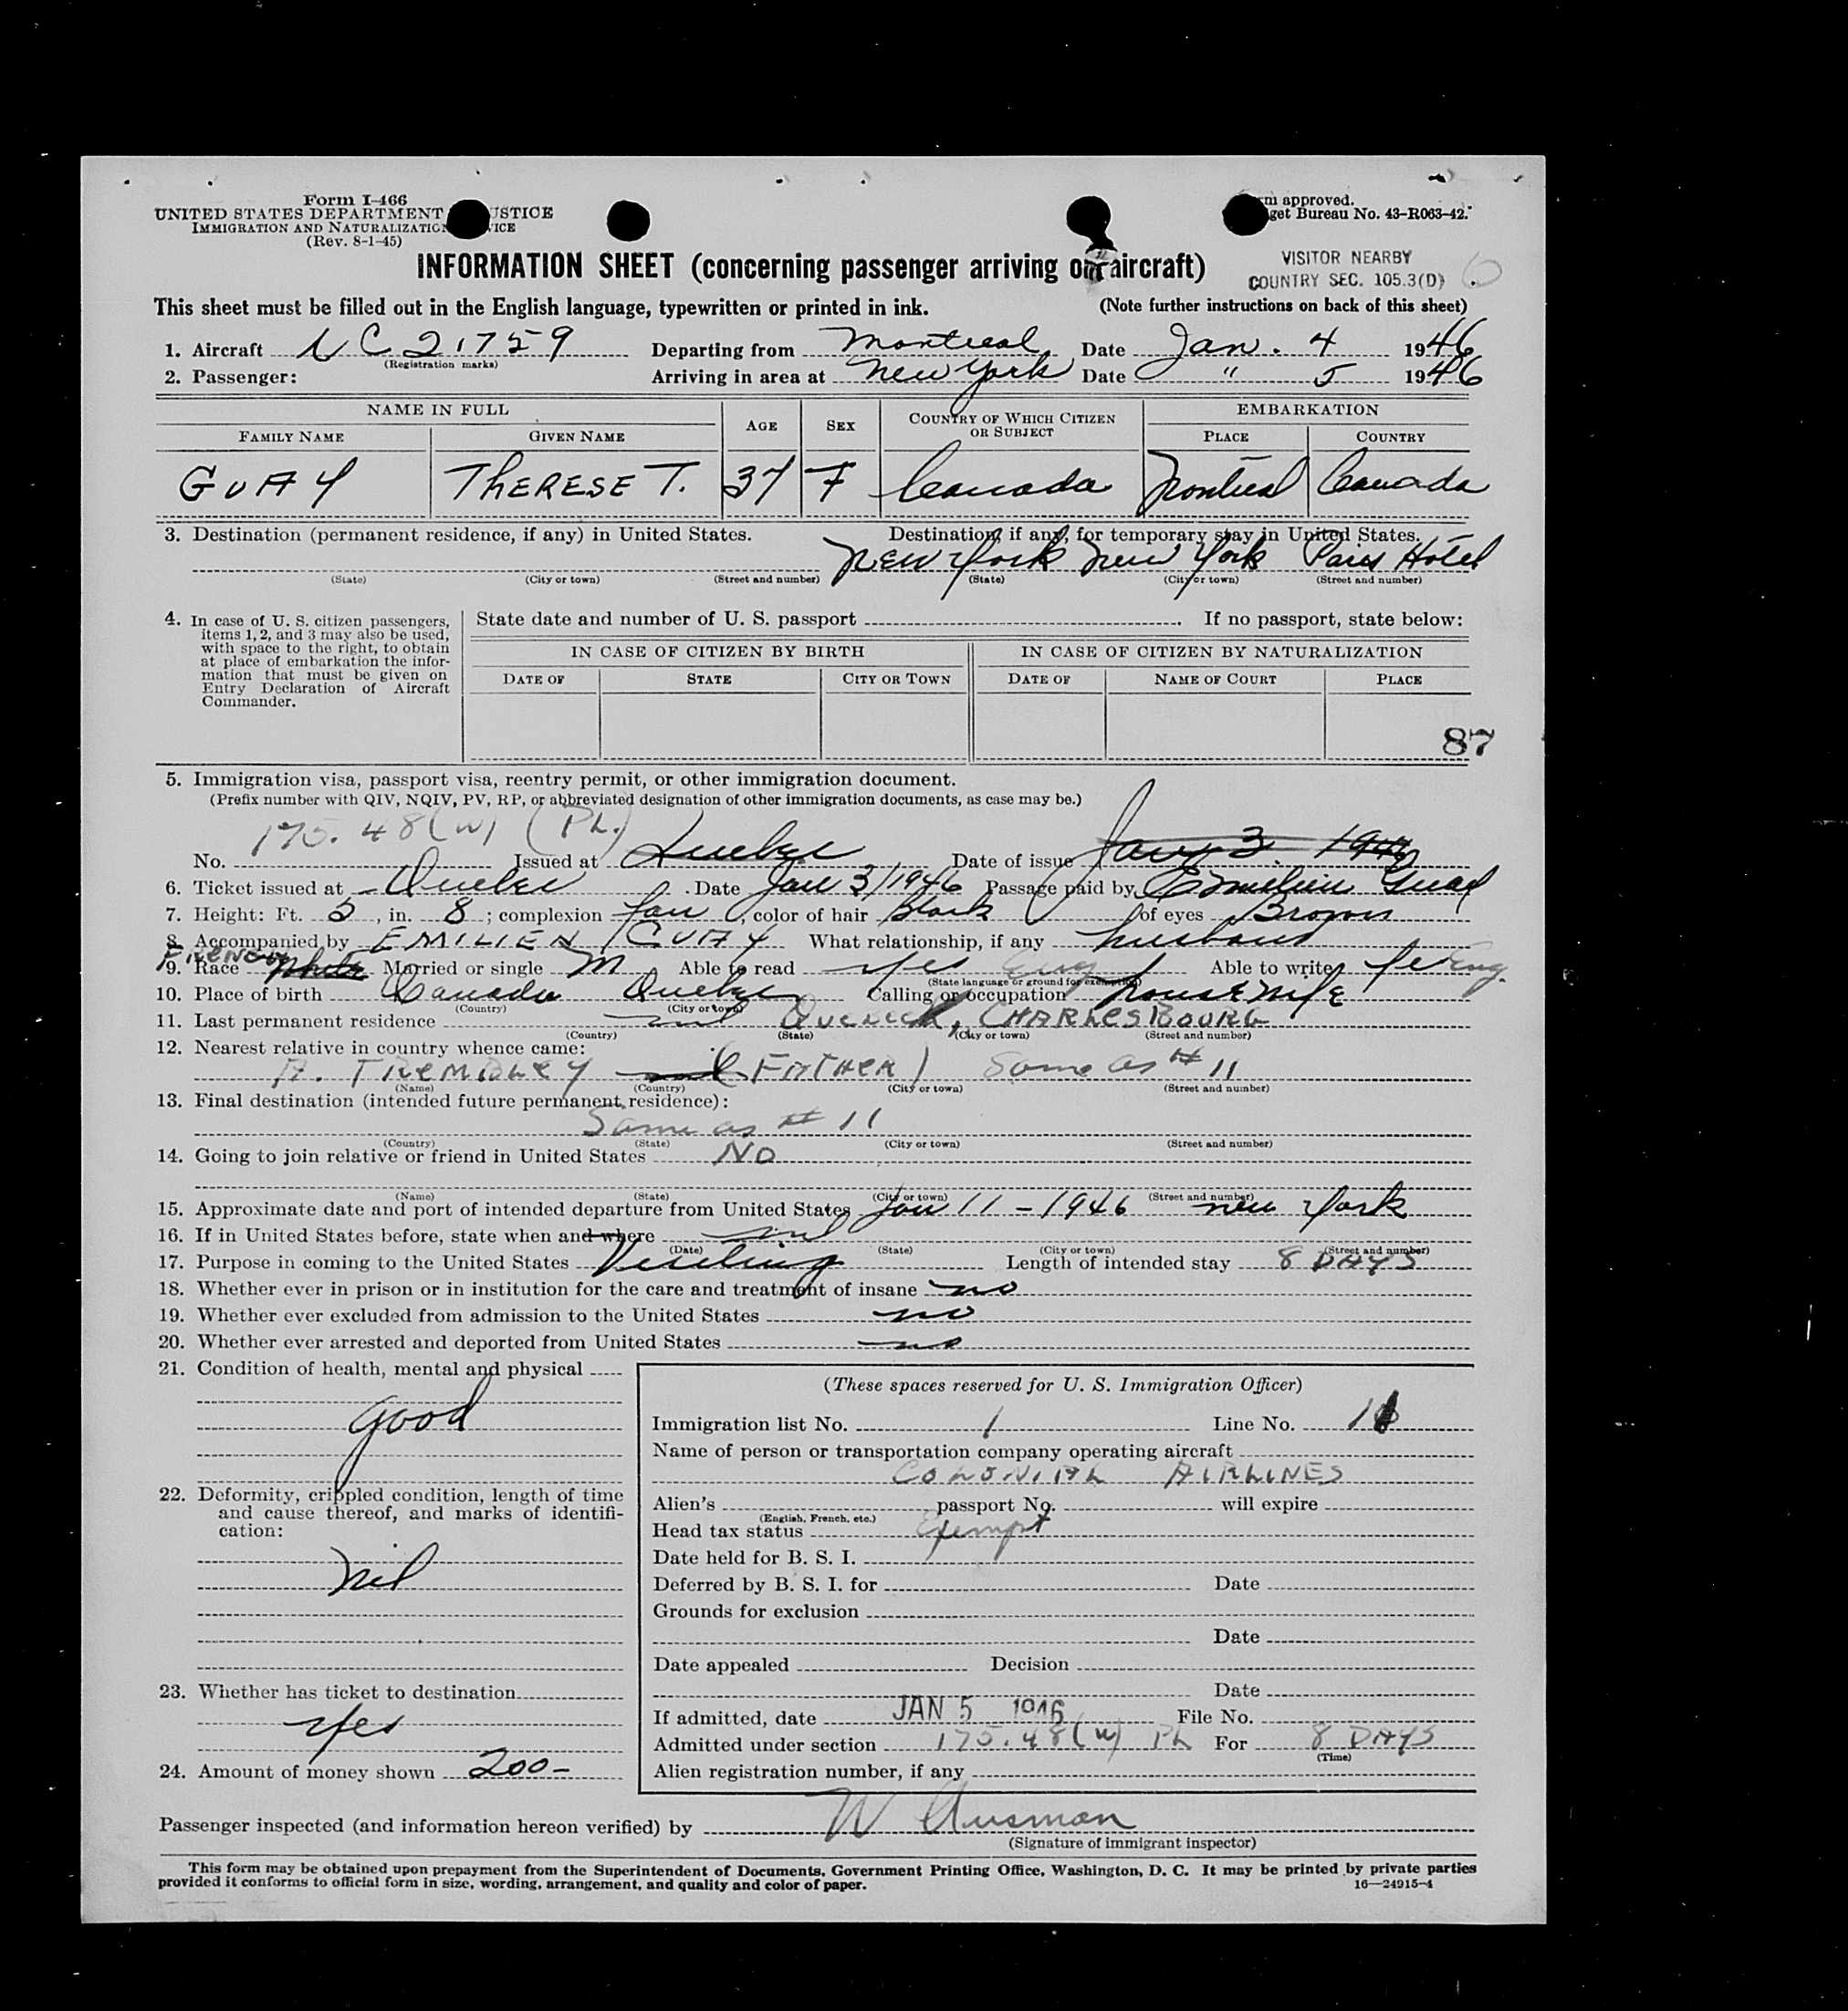 Form I-466
UNITED STATES DEPARTMENT USTICE
IMMIGRATION AND NATURALIZATION
(Rev. 8-1-45)
approved.
get Bureau No. 43-R063-42.
INFORMATION SHEET (concerning passenger arriving on aircraft)
VISITOR NEARBY
COUNTRY SEC. 105.3(D)
This sheet must be filled out in the English language, typewritten or printed in ink. (Note further instructions on back of this sheet)
1. Aircraft NC 21759 Departing from Montreal Date Jan. 4 1946
(Registration marks)
2. Passenger: Arriving in area at New York Date " 5 1946
NAME IN FULL AGE SEX COUNTRY OF WHICH CITIZEN OR SUBJECT EMBARKATION
FAMILY NAME GIVEN NAME PLACE COUNTRY
GUAY THERESE T. 37 F Canada Montreal Canada
3. Destination (permanent residence, if any) in United States. Destination, if any, for temporary stay in United States.
New York New York Paris Hotel
(State) (City or town) (Street and number) (State) (City or town) (Street and number)
4. In case of U. S. citizen passengers, items 1, 2, and 3 may also be used, with space to the right, to obtain at place of embarkation the information that must be given on Entry Declaration of Aircraft Commander.
State date and number of U. S. passport . If no passport, state below:
IN CASE OF CITIZEN BY BIRTH IN CASE OF CITIZEN BY NATURALIZATION
DATE OF STATE CITY OR TOWN DATE OF NAME OF COURT PLACE
87
5. Immigration visa, passport visa, reentry permit, or other immigration document.
(Prefix number with QIV, NQIV, PV, RP, or abbreviated designation of other immigration documents, as case may be.)
175.48(w) (Ph.)
No. Issued at Quebec Date of issue Jan 3 1946
6. Ticket issued at Quebec Date Jan 3/1946 Passage paid by Emilien Guay
7. Height: Ft. 5, in. 8; complexion fair, color of hair Black of eyes Brown
8. Accompanied by EMILIEN GUAY What relationship, if any husband
FRENCH
9. Race White Married or single M Able to read yes Eng Able to write yes Eng.
(State language or ground for exemption)
10. Place of birth Canada Quebec Calling or occupation housewife
(Country) (City or town)
11. Last permanent residence nil Quebec, CHARLESBOURG
(Country) (State) (City or town) (Street and number)
12. Nearest relative in country whence came:
A. TREMBLEY nil (FATHER) Same as #11
(Name) (Country) (City or town) (Street and number)
13. Final destination (intended future permanent residence):
Same as #11
(Country) (State) (City or town) (Street and number)
14. Going to join relative or friend in United States NO
(Name) (State) (City or town) (Street and number)
15. Approximate date and port of intended departure from United States Jan 11 - 1946 New York
16. If in United States before, state when and where nil
(Date) (State) (City or town) (Street and number)
17. Purpose in coming to the United States Visiting Length of intended stay 8 DAYS
18. Whether ever in prison or in institution for the care and treatment of insane no
19. Whether ever excluded from admission to the United States no
20. Whether ever arrested and deported from United States no
21. Condition of health, mental and physical
Good
22. Deformity, crippled condition, length of time and cause thereof, and marks of identification:
Nil
23. Whether has ticket to destination
yes
24. Amount of money shown 200-
(These spaces reserved for U. S. Immigration Officer)
Immigration list No. 1 Line No. 11
Name of person or transportation company operating aircraft
COLONIAL AIRLINES
Alien's passport No. will expire
(English, French, etc.)
Head tax status Exempt
Date held for B. S. I.
Deferred by B. S. I. for Date
Grounds for exclusion
Date
Date appealed Decision
Date
If admitted, date JAN 5 1946 File No.
Admitted under section 175.48(w) Ph For 8 DAYS
(Time)
Alien registration number, if any
Passenger inspected (and information hereon verified) by W Ausman
(Signature of immigrant inspector)
This form may be obtained upon prepayment from the Superintendent of Documents, Government Printing Office, Washington, D. C. It may be printed by private parties
provided it conforms to official form in size, wording, arrangement, and quality and color of paper. 16—24915-4